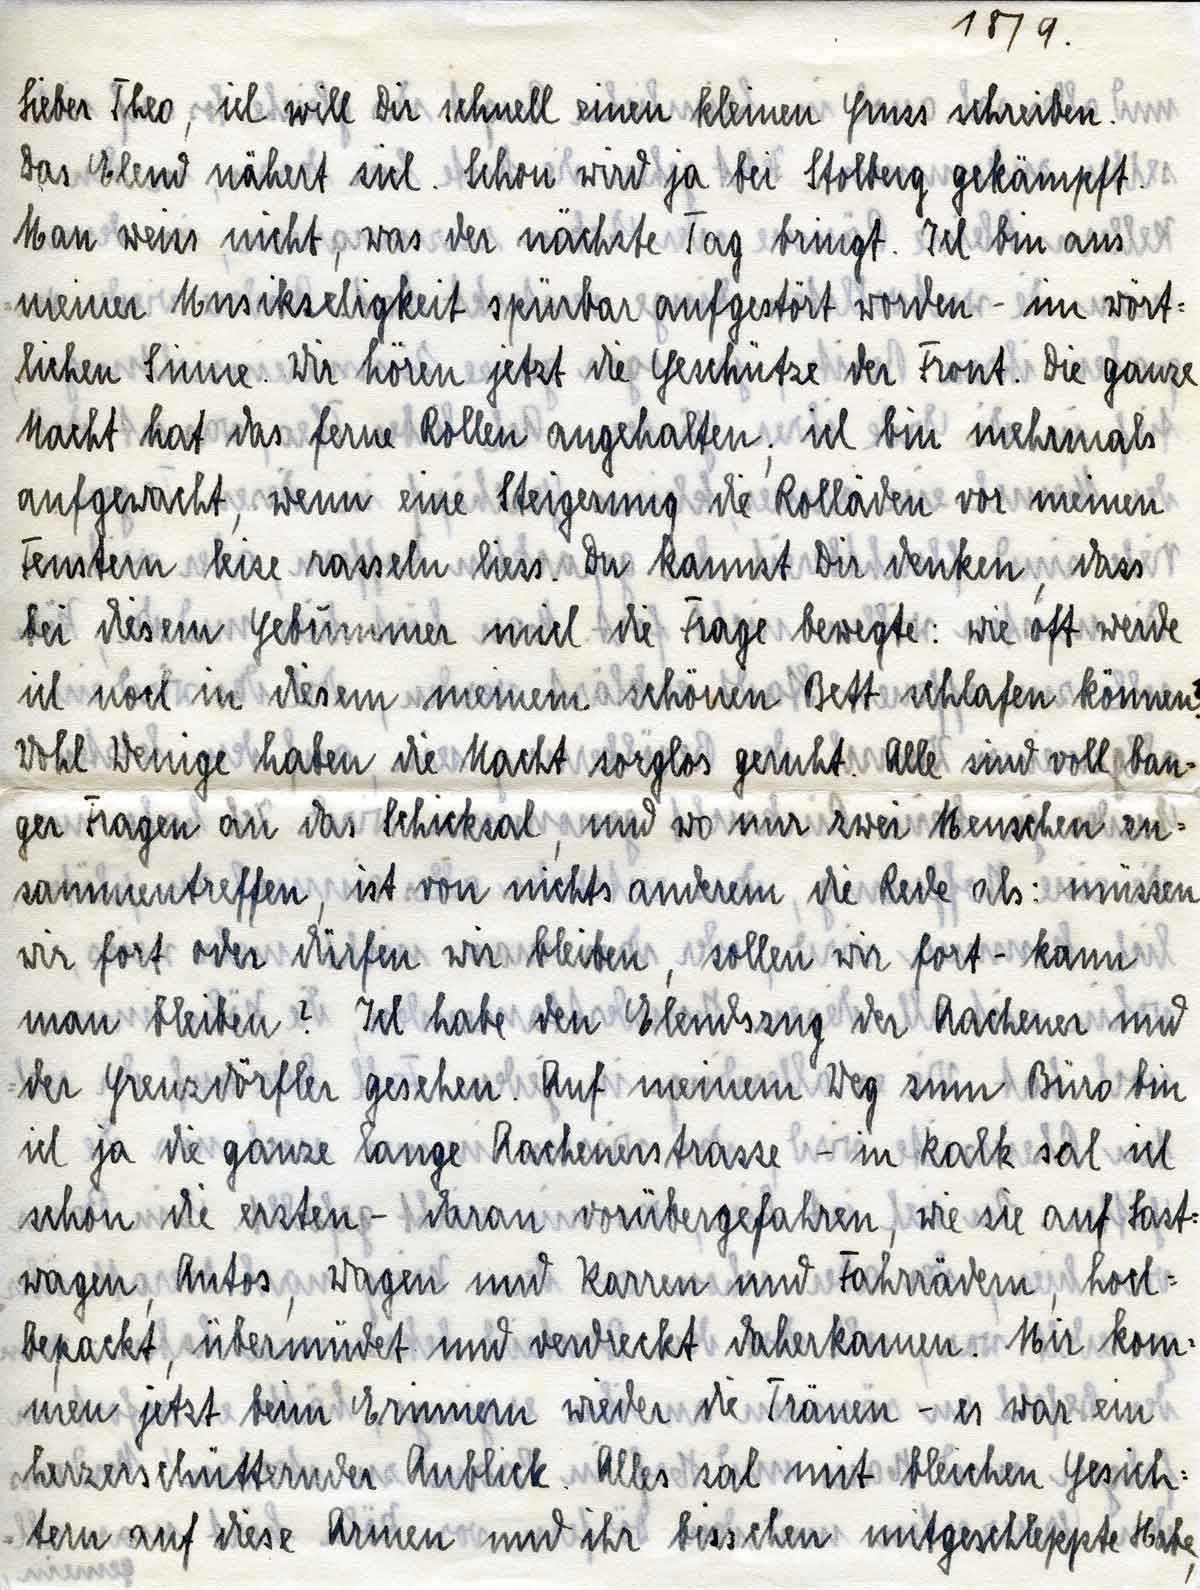 18/9.
Lieber Theo, ich will Dir schnell einen kleinen Gruss schreiben.
Das Elend nähert sich. Schon wird ja bei Stolberg gekämpft.
Man weiss nicht, was der nächste Tag bringt. Ich bin aus
meiner Musikseligkeit spürbar aufgestört worden - im wört=
lichen Sinne. Wir hören jetzt die Geschütze der Front. Die ganze
Nacht hat das ferne Rollen angehalten; ich bin mehrmals
aufgewacht, wenn eine Steigerung die Rolläden vor meinen
Fenstern leise rasseln liess. Du kannst Dir denken, dass
bei diesem Gebummer mich die Frage bewegte: wie oft werde
ich noch in diesem meinem schönen Bett schlafen können?
Wohl Wenige haben die Nacht sorglos geruht. Alle sind voll ban=
ger Fragen an das Schicksal, und wo nur zwei Menschen zu=
sammentreffen, ist von nichts anderem die Rede als: müssen
wir fort oder dürfen wir bleiben, sollen wir fort - kann
man bleiben? Ich habe den Elendszug der Aachener und
der Grenzdörfler gesehen. Auf meinem Weg zum Büro bin
ich ja die ganze lange Aachenerstrasse - in Kalk sah ich
schon die ersten - daran vorübergefahren, wie sie auf Last=
wagen, Autos, Wagen und Karren und Fahrrädern, hoch=
bepackt, übermüdet und verdreckt daherkamen. Mir kom=
men jetzt beim Erinnern wieder die Tränen - es war ein
herzerschütternder Anblick. Alles sah mit bleichen Gesich=
tern auf diese Armen und ihr bisschen mitgeschleppte Habe,